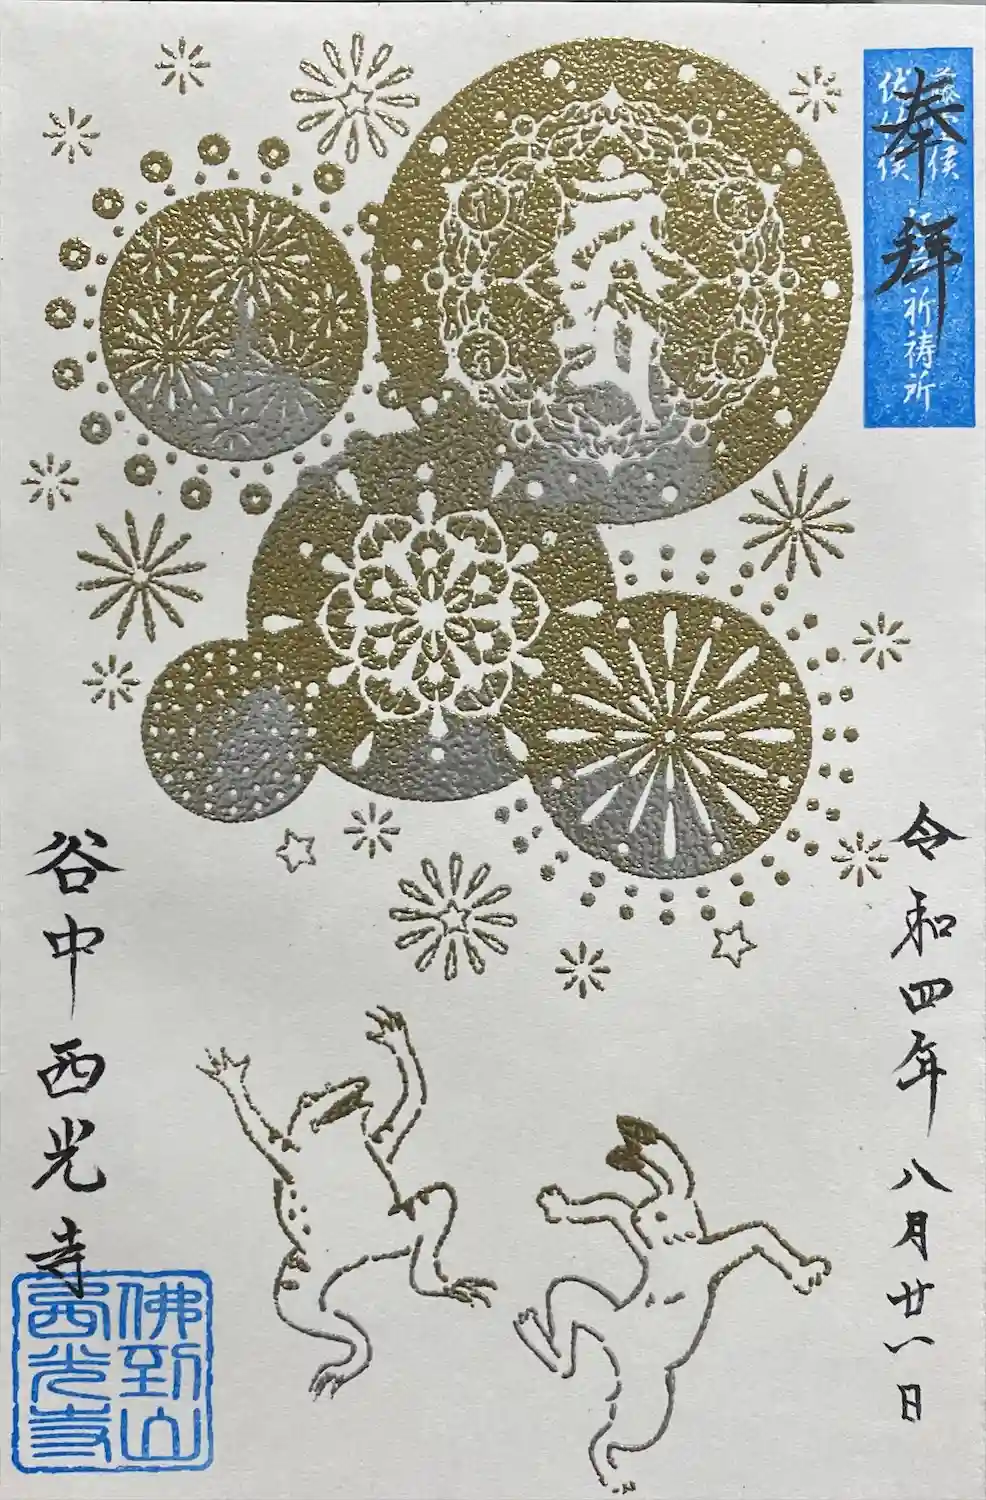 奉拝
祈祷所
令和四年八月廿八日
谷中西光寺
佛到山
西光寺